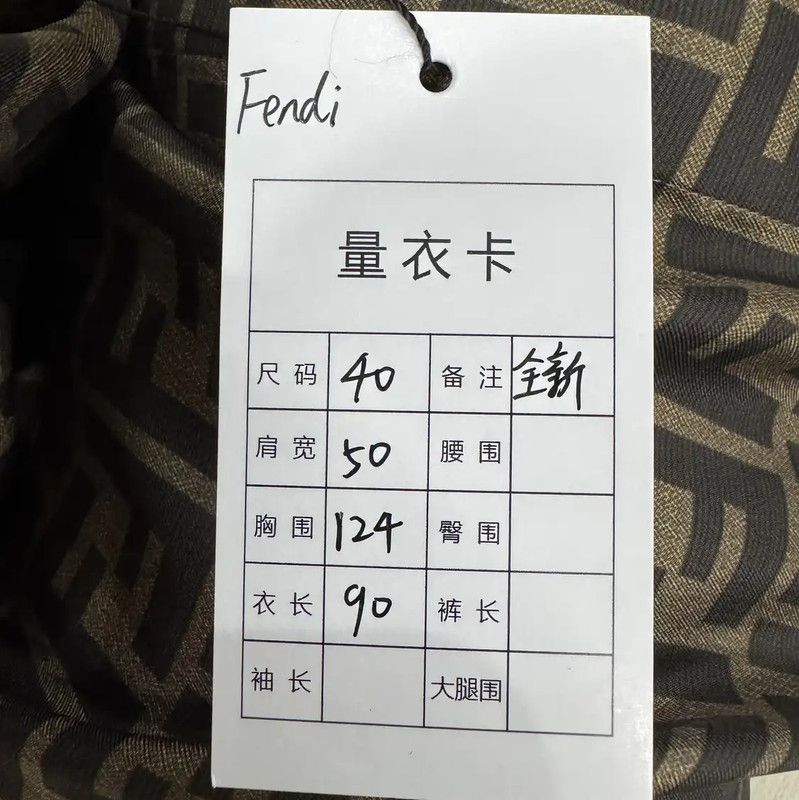 Fendi
量衣卡
尺码 40 备注 全新
肩宽 50 腰围
胸围 124 臀围
衣长 90 裤长
袖长 大腿围